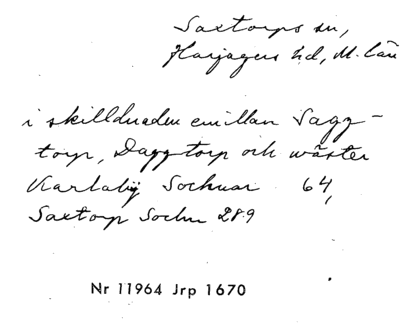 Saxtorps sn,
Harjagers hd, M. län
i skillduaden emillan Sagg-
torp, Daggtorp och wäster
Karlaby Sochnar 64,
Saxtorp Sochn 289
Nr 11964 Jrp 1670